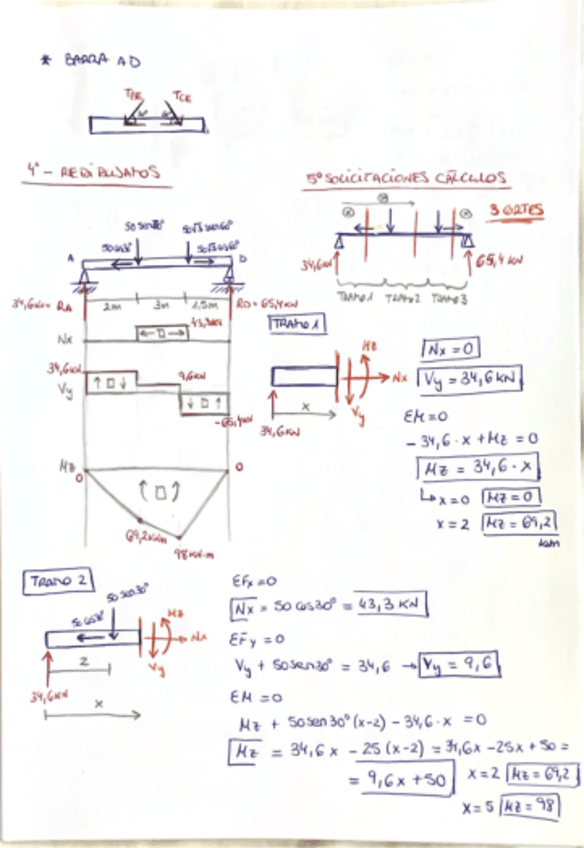 * BARRA AD
TBE TCE
4º - REDIBUJAMOS
5º SOLICITACIONES CÁLCULOS
3 CORTES
50sen30º
50√3sen60º
50cos30º
50√3cos60º
A
D
34,6KN = RA
2m
3m
1,5m
RD = 65,4KN
34,6KN
65,4KN
TRAMO 1 TRAMO 2 TRAMO 3
Nx
43,3KN
34,6KN
Vy
9,6KN
-65,4KN
Mz
0
0
69,2KNm
98KN·m
TRAMO 1
Mz
Nx
Vy
x
34,6KN
Nx = 0
Vy = 34,6KN
ΣM=0
- 34,6·x + Mz = 0
Mz = 34,6·x
x=0 Mz=0
x=2 Mz=69,2
KNm
TRAMO 2
50sen30º
50cos30º
Mz
Nx
Vy
2
34,6KN
x
ΣFx=0
Nx = 50cos30º = 43,3 KN
ΣFy=0
Vy + 50sen30º = 34,6 → Vy = 9,6
ΣM=0
Mz + 50sen30º(x-2) - 34,6·x = 0
Mz = 34,6x - 25(x-2) = 34,6x - 25x + 50 =
= 9,6x + 50
x=2 Mz=69,2
x=5 Mz=98